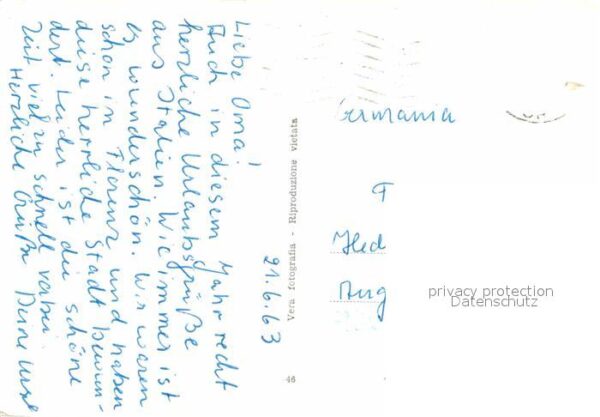 Liebe Oma!
Auch in diesem Jahr recht
herzliche Urlaubsgrüße
aus Italien. Wie immer ist
es wunderschön. Wir waren
schon in Florenz und haben
diese herrliche Stadt bewun-
dert. Leider ist die schöne
Zeit viel zu schnell vorbei.
Herzliche Grüße Deine
21.6.63
Vera fotografia - Riproduzione vietata
46
Germania
F
Hed
Aug
privacy protection
Datenschutz